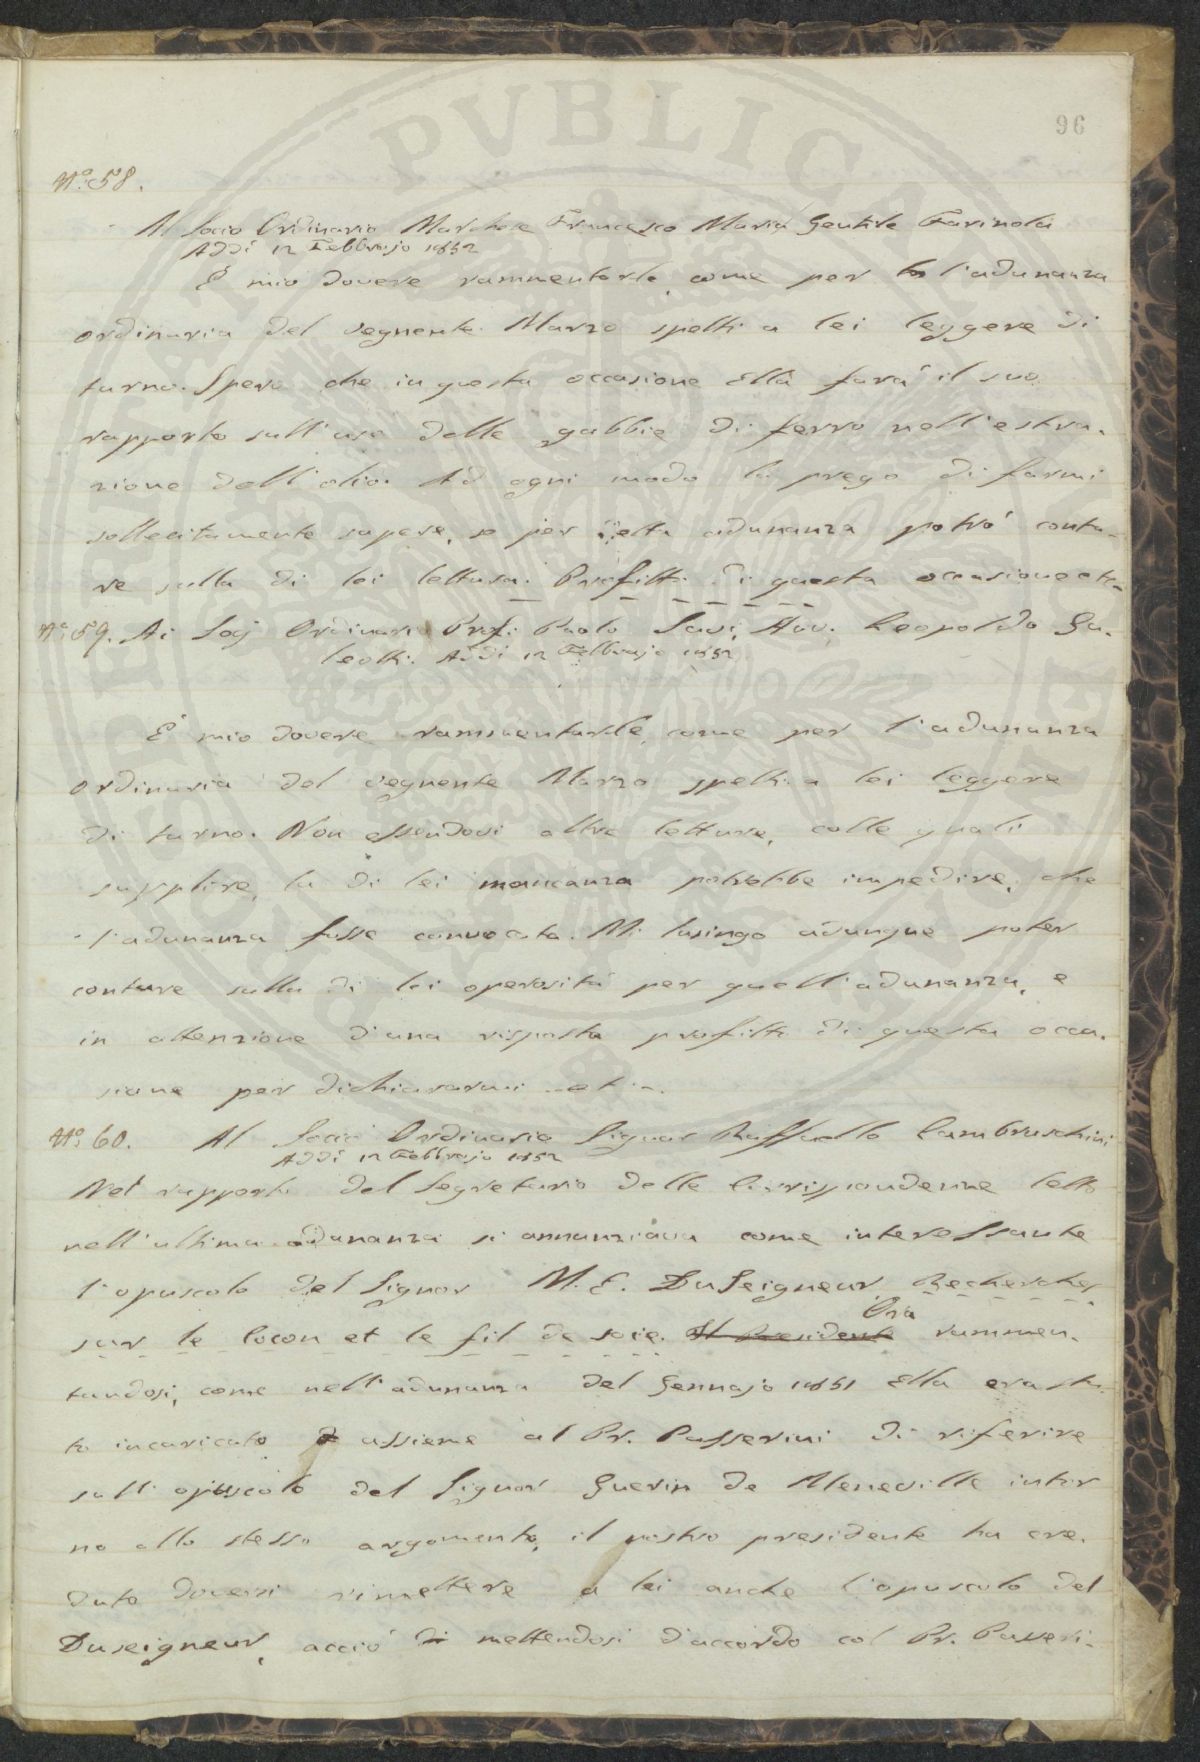 96
N.º 58.
Al Socio Ordinario Marchese Francesco Maria Gentile Farinola
Addì 12 Febbrajo 1852
È mio dovere rammentarle, come per l'adunanza
ordinaria del vegnente Marzo spetti a lei leggere di
turno. Spero che in questa occasione Ella farà il suo
rapporto sull'uso delle gabbie di ferro nell'estra-
zione dell'olio. Ad ogni modo la prego di farmi
sollecitamente sapere, se per detta adunanza potrò conta-
re sulla di lei lettura. Profitto di questa occasione etc.
N.º 59. Ai Socj Ordinari Prof: Paolo Savi, Avv. Leopoldo Ga-
leotti. Addì 12 Febbrajo 1852
È mio dovere rammentarle, come per l'adunanza
ordinaria del vegnente Marzo spetti a lei leggere
di turno. Non essendovi altre letture, colle quali
supplire, la di lei mancanza potrebbe impedire, che
l'adunanza fosse convocata. Mi lusingo adunque poter
contare sulla di lei operosità per quell'adunanza, e
in attenzione d'una risposta profitto di questa occa-
sione per dichiararmi etc.
N.º 60. Al Socio Ordinario Signor Raffaello Lambruschini
Addì 12 Febbrajo 1852
Nel rapporto del Segretario delle Corrispondenze letto
nell'ultima adunanza si annunziava come interessante
l'opuscolo del Signor M. E. DuSeigneur, Recherches
sur le Cocon et le fil de soie. Il Presidente Ora rammen-
tandosi, come nell'adunanza del Gennajo 1851 Ella era sta-
to incaricato assieme al Pr. Passerini di riferire
sull'opuscolo del Signor Guerin de Meneville intor
no allo stesso argomento, il nostro presidente ha cre-
duto doversi rimettere a lei anche l'opuscolo del
Duseigneur, acciò di mettendosi d'accordo col Pr. Passeri-